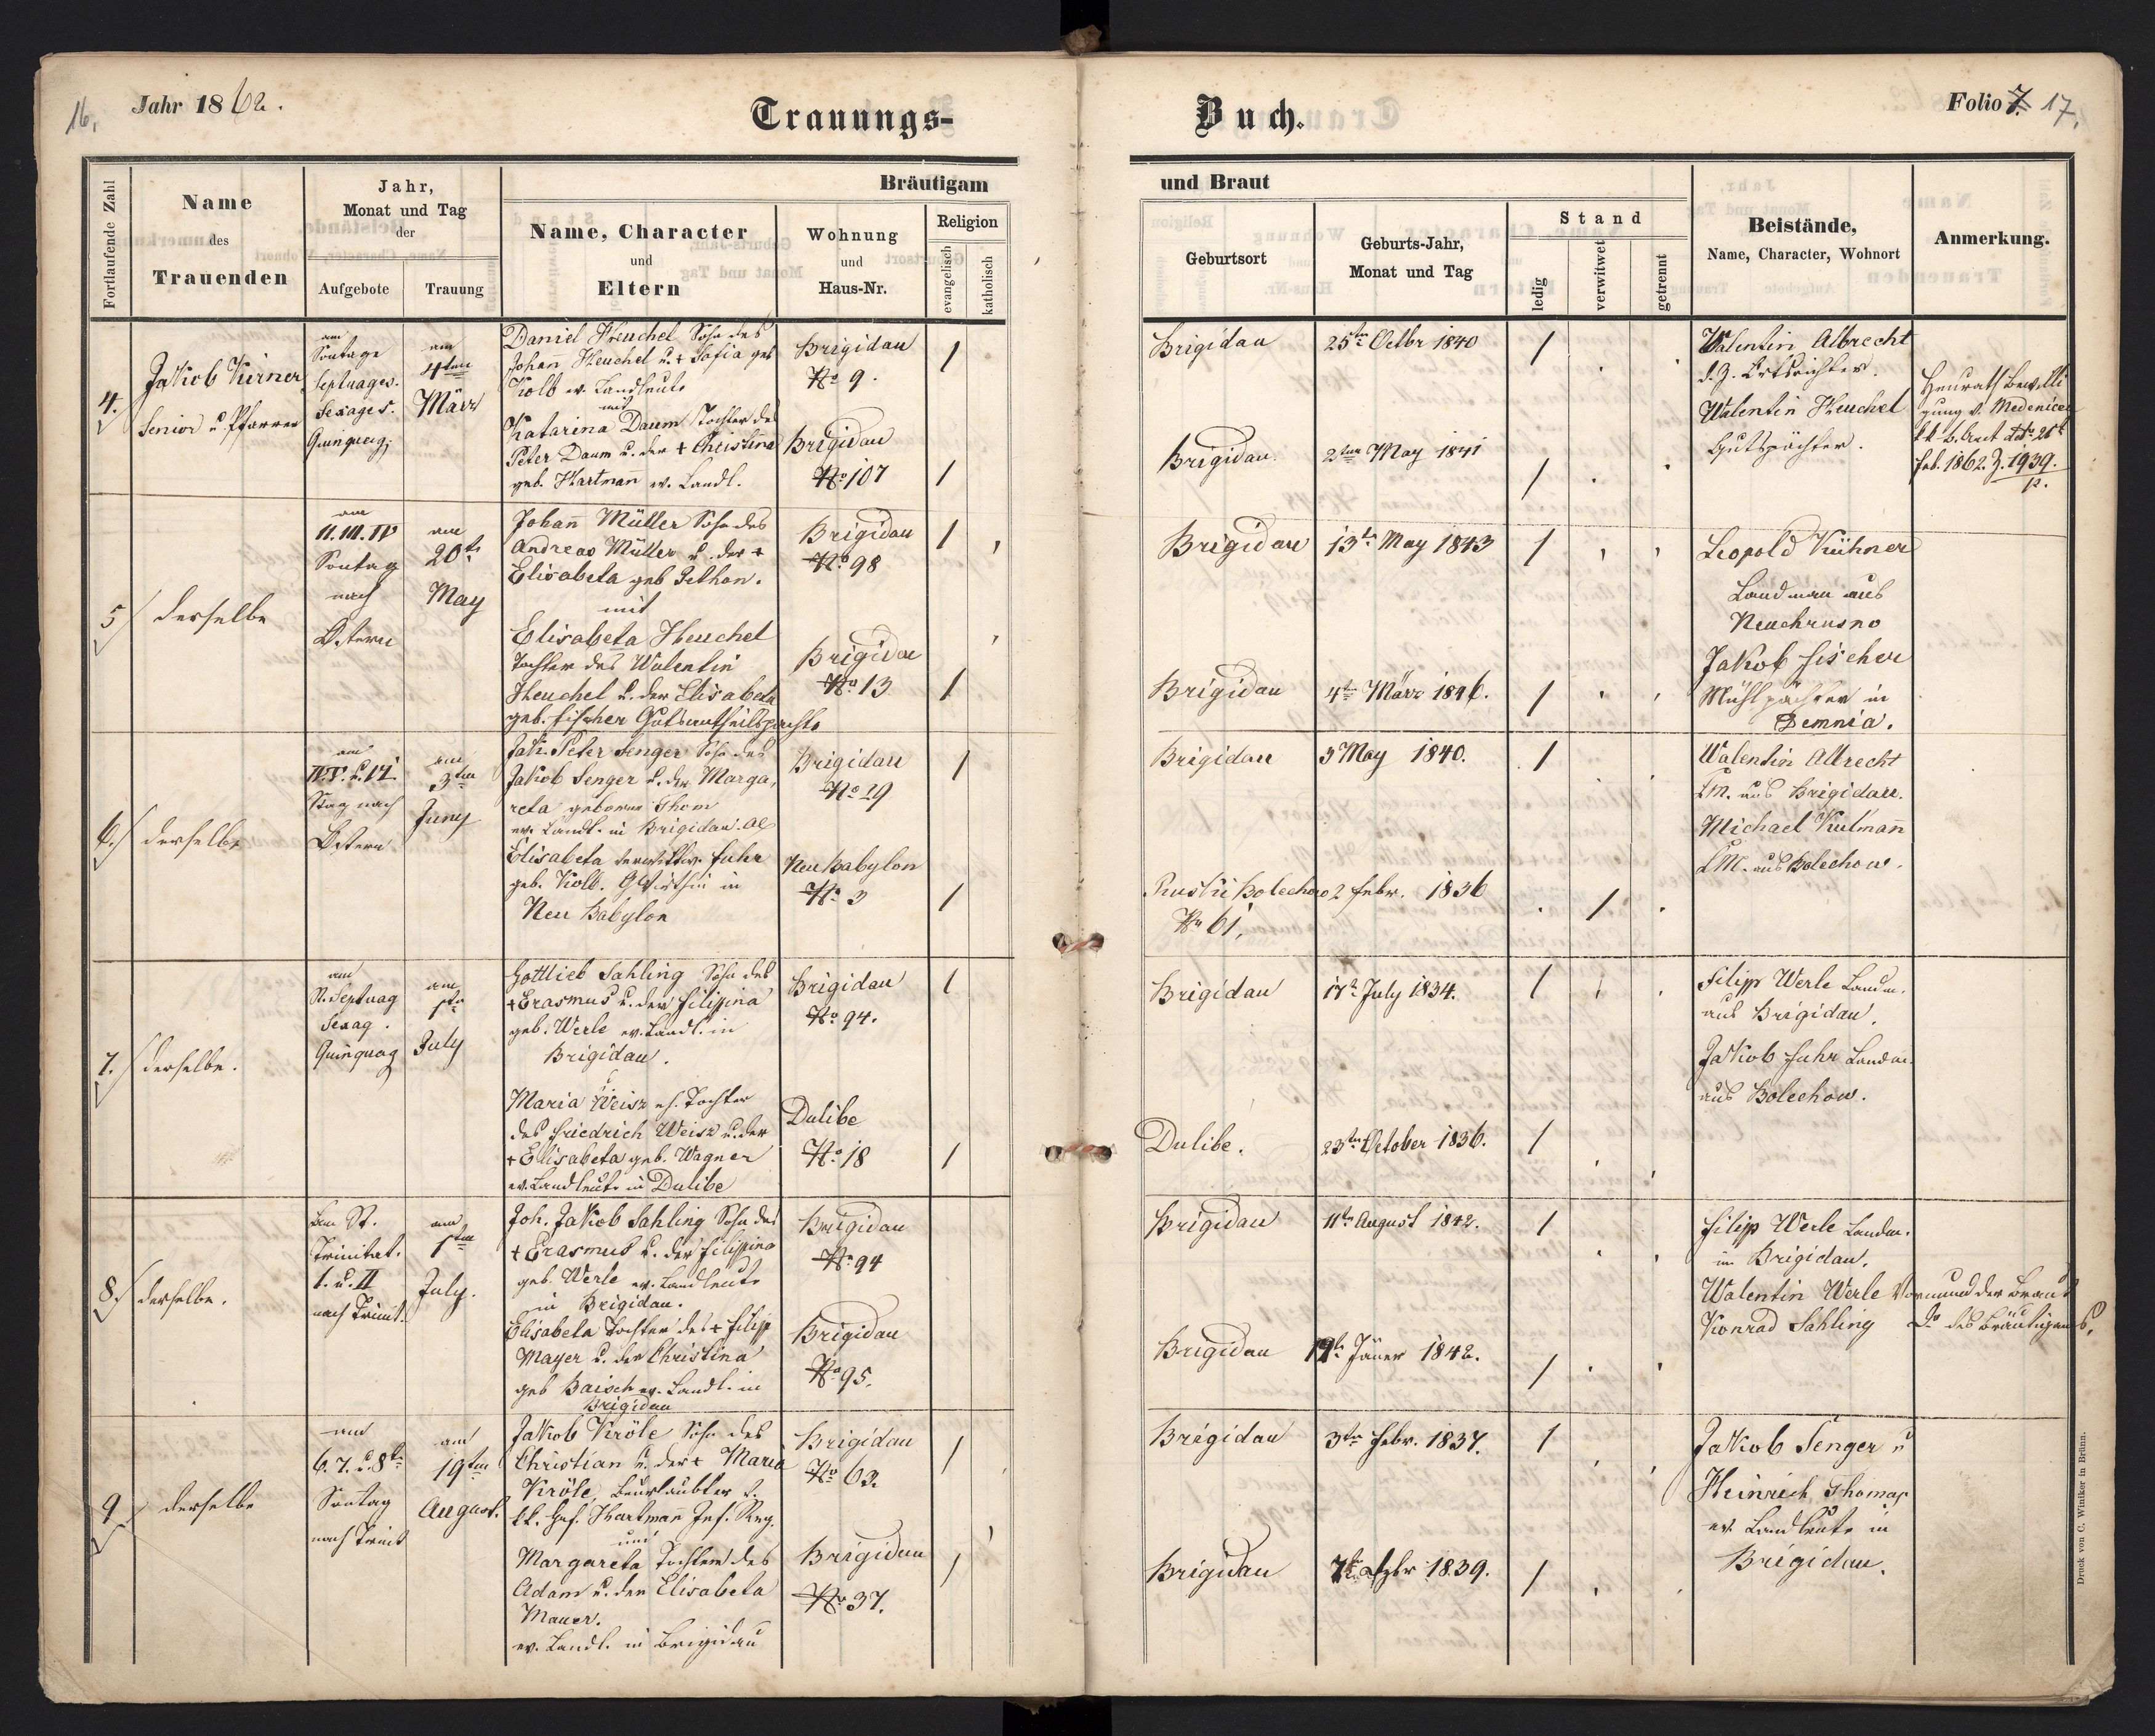 16.
Jahr 1862.
Trauungs-
Buch.
Folio 7. 17.
Fortlaufende Zahl
Name
des
Trauenden
Jahr,
Monat und Tag
der
Aufgebote
Trauung
Bräutigam
Name, Character
und
Eltern
Wohnung
und
Haus-Nr.
Religion
evangelisch
katholisch
und Braut
Geburtsort
Geburts-Jahr,
Monat und Tag
Stand
ledig
verwitwet
getrennt
Beistände,
Name, Character, Wohnort
Anmerkung.
4.
Jakob Kirner
Senior u. Pfarrer
am
Sontage
Septuages.
Sexages.
Quinquag.
am
4ten
März
Daniel Heuchel Sohn des
Johan Heuchel u. + Sofia geb
Kolb ev. Landleute
mit
Katarina Daum Tochter des
Peter Daum u. der + Christina
geb. Hartmañ ev. Landl.
Brigidau
No 9.
Brigidau
No 107
/
/
Brigidau
25ten Octbr 1840
/
Brigidau
2ten May 1841
/
Valentin Albrecht
d. Z. Ortsrichter.
Valentin Heuchel
Gutspächter.
Heurath Bewilli
gung v. Medenicer
kk. b. Amt ddto 26t
Feb. 1862. Z. 1939.
5/
derselbe
am
II. III. IV
Sontag
nach
Ostern
am
20t.
May
Johañ Müller Sohn des
Andreas Müller u. der +
Elisabeta geb Jethon.
mit
Elisabeta Heuchel
Tochter des Valentin
Heuchel u. der Elisabeta
geb. Fischer Gutsantheilspächts
Brigidau
No 98
Brigidau
No 13
/
/
Brigidau
13t. May 1843
/
Brigidau
4t. März 1846.
/
Leopold Kühner
Landman aus
Neuchrusno
Jakob Fischer
Mühlpächter in
Demnia.
6./
derselbe
am
IV. V. u. VI.
Stag nach
Ostern
am
3ten
Juny
Jak. Peter Senger Sohn des
Jakob Senger u. der Marga,
reta geborne Thom
ev. Landl. in Brigidau.
Elisabeta verwittw. Fuhr
geb. Kolb. Gwirthin in
Neu Babylon
Brigidau
No 19
Neu Babylon
No 3
/
/
Brigidau
3 May 1840.
/
Bolechow
No 61.
2 Febr. 1836
/
Valentin Albrecht
LM. aus Brigidau.
Michael Kulmañ
LM. aus Bolechow.
7./
derselbe.
am
St. Septuag
Sexag.
Quinquag
am
1tn
July
Gottlieb Sahling Sohn des
+ Erasmus u. der Filippina
geb. Werle ev. Landl. in
Brigidau.
Maria Weisz eh. Tochter
des Friedrich Weisz u. der
+ Elisabeta geb. Wagner
ev. Landleute in Dulibe
Brigidau
No 94.
Dulibe
No 18
/
/
Brigidau
17t July 1834.
/
Dulibe.
23ten October 1836.
/
Filipp Werle Landm.
aus Brigidau.
Jakob Fuhr Landm.
aus Bolechow.
8./
derselbe.
St.
Trinitat.
I. u. II
nach Trinit.
am
1ten
July.
Joh. Jakob Sahling Sohn des
+ Erasmus u. der Filippina
geb. Werle ev. Landleute
in Brigidau.
Elisabeta Tochter des + Filipp
Mayer u. der Christina
geb Baisch ev. Landl. in
Brigidau
Brigidau
No 94
Brigidau
No 95.
Brigidau
11tn August 1842.
/
Brigidau
19t. Jäner 1842.
/
Filipp Werle Landm.
in Brigidau.
Valentin Werle Vormund der Braut
Konrad Sahling do des Bräutigams.
9
derselbe
am
6. 7. u. 8t.
Sontag
nach Trinit
am
19ten
August.
Jakob Kröle Sohn des
Christian u. der + Maria
Kröle, beurlaubter v.
kk. Hartmañ Inf. Reg.
und
Margareta Tochter des
Adam u. der Elisabeta
Mauer.
ev. Landl. in Brigidau
Brigidau
No 63.
Brigidau
No 37.
/
/
Brigidau
3tn Febr. 1837.
/
Brigidau
1839.
/
Jakob Senger u
Heinrich Thomas
ev. Landleute in
Brigidau.
Druck von C. Winiker in Brünn.